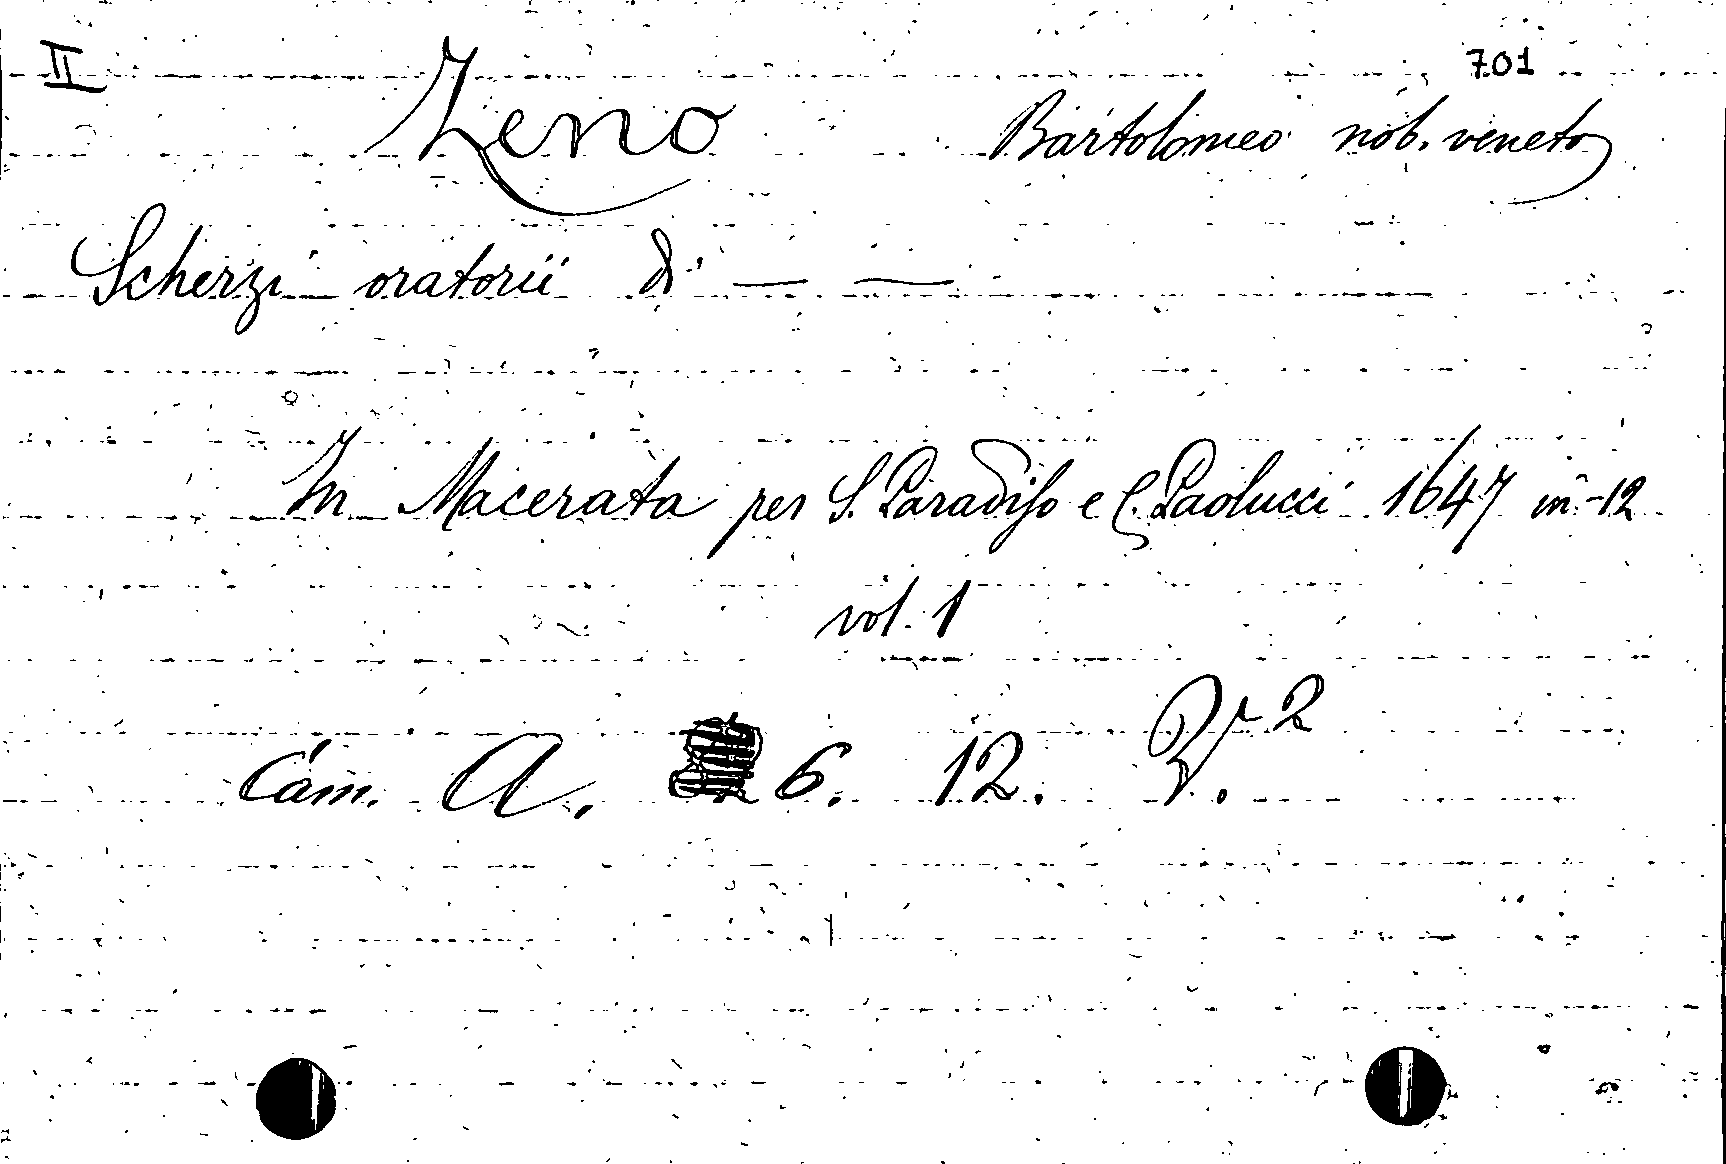 II 701
Zeno Bartolomeo nob. veneto
Scherzi oratorii di — —
In Macerata per S. Paradiso e C. Paolucci 1647 in-12
vol. 1
Cam. A. 6. 12.